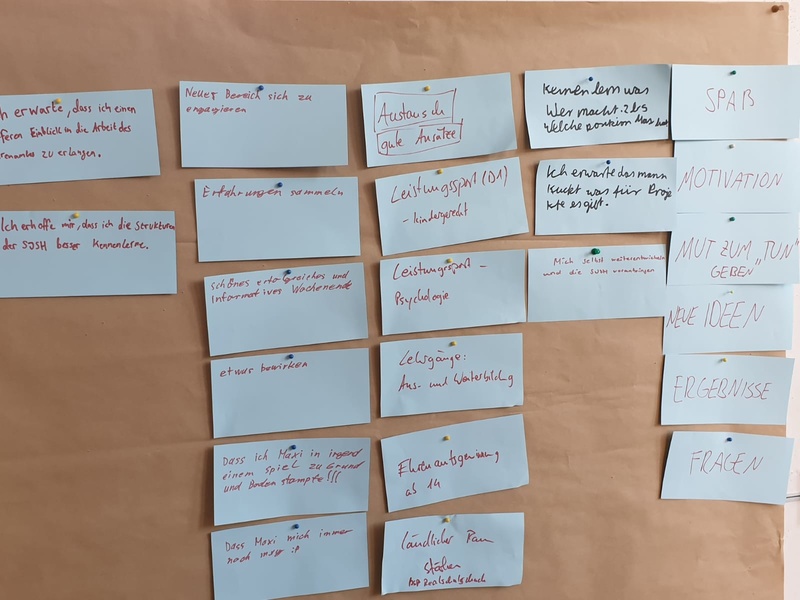 h erwarte, dass ich einen
feren Einblick in die Arbeit des
renamtes zu erlangen.
Ich erhoffe mir, dass ich die Strukturen
der SJSH besser Kennenlerne.
Neuer Bereich sich zu
engagieren
Erfahrungen sammeln
schönes erfolgreiches und
Informatives Wochenende
etwas bewirken
Dass ich Maxi in irgend
einem spiel zu Grund
und Boden stampfe!!!
Dass Maxi mich immer
noch mag :P
Austausch
gute Ansätze
Leistungssport (D1)
- kindgerecht
Leistungssport -
Psychologie
Lehrgänge:
Aus- und Weiterbildg
Ehrenamtsgewinnung
ab 14
ländlicher Raum
stärken
Kennenlernen was
Wer macht. z.B.
Welche position Max hat
Ich erwarte das mann
kuckt was für Proje
kte es gibt.
Mich selbst weiterentwickeln
und die SJSH voranbringen
SPAß
MOTIVATION
MUT ZUM „TUN"
GEBEN
NEUE IDEEN
ERGEBNISSE
FRAGEN